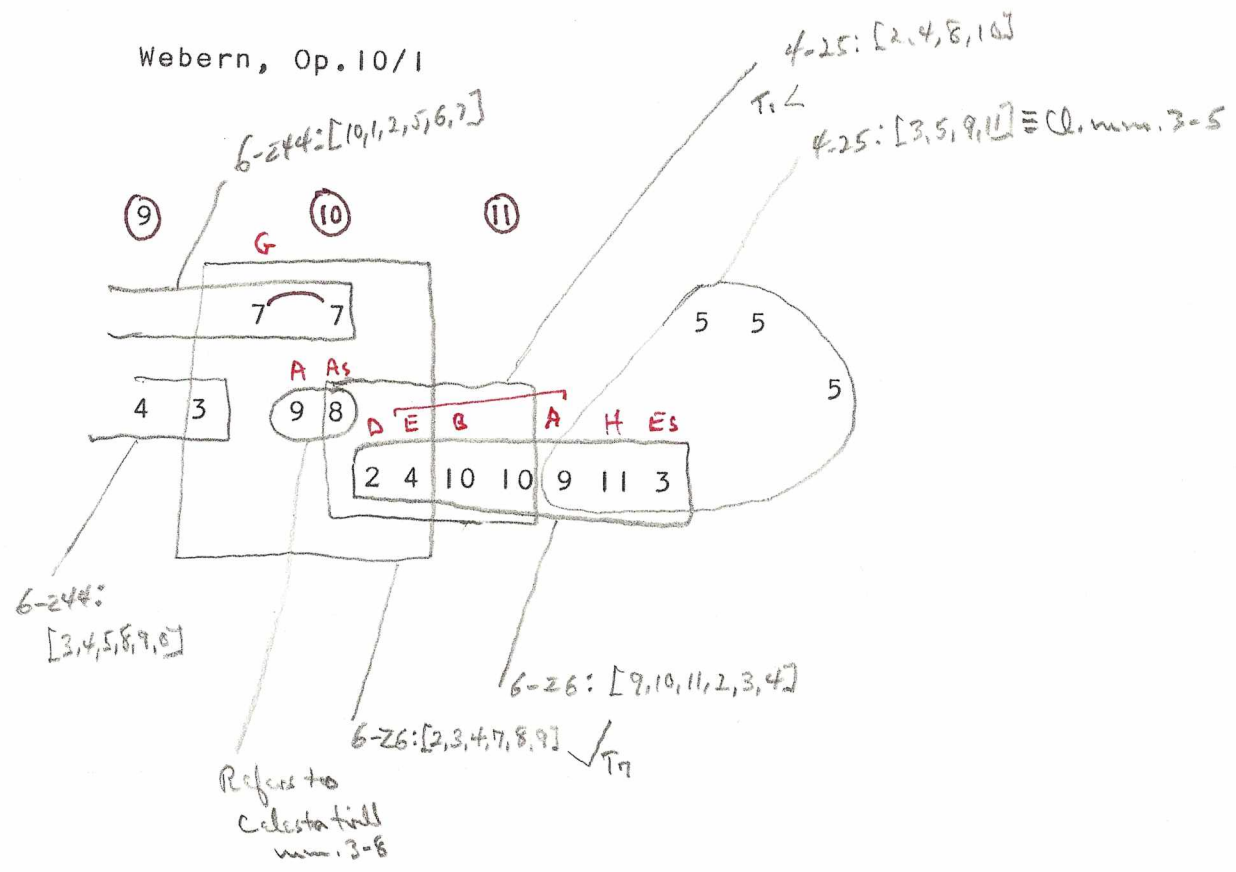 Webern, Op.10/1
4-25: [2,4,8,10]
T₁ <
4-25: [3,5,9,11] ≡ Cl. mm. 3-5
6-z44: [10,1,2,5,6,7]
9 10 11
G
7 7
5 5
5
A As
4 3 9 8
D E B A H Es
2 4 10 10 9 11 3
6-z44:
[3,4,5,8,9,0]
6-z6: [9,10,11,2,3,4]
6-z6: [2,3,4,7,8,9]
T₇
Refers to
Celesta trill
mm. 3-8